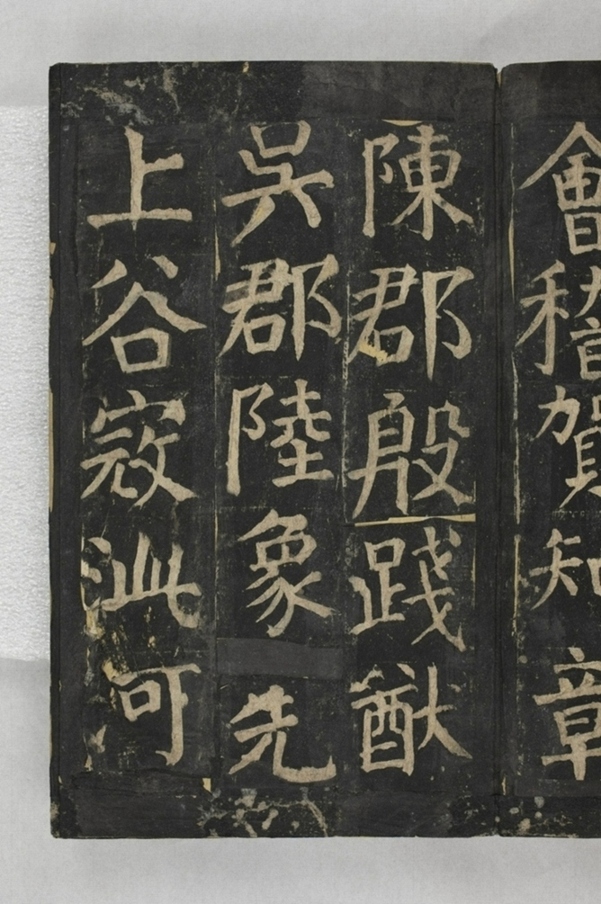 會稽賀知章
陳郡殷踐猷
吳郡陸象先
上谷寇泚河